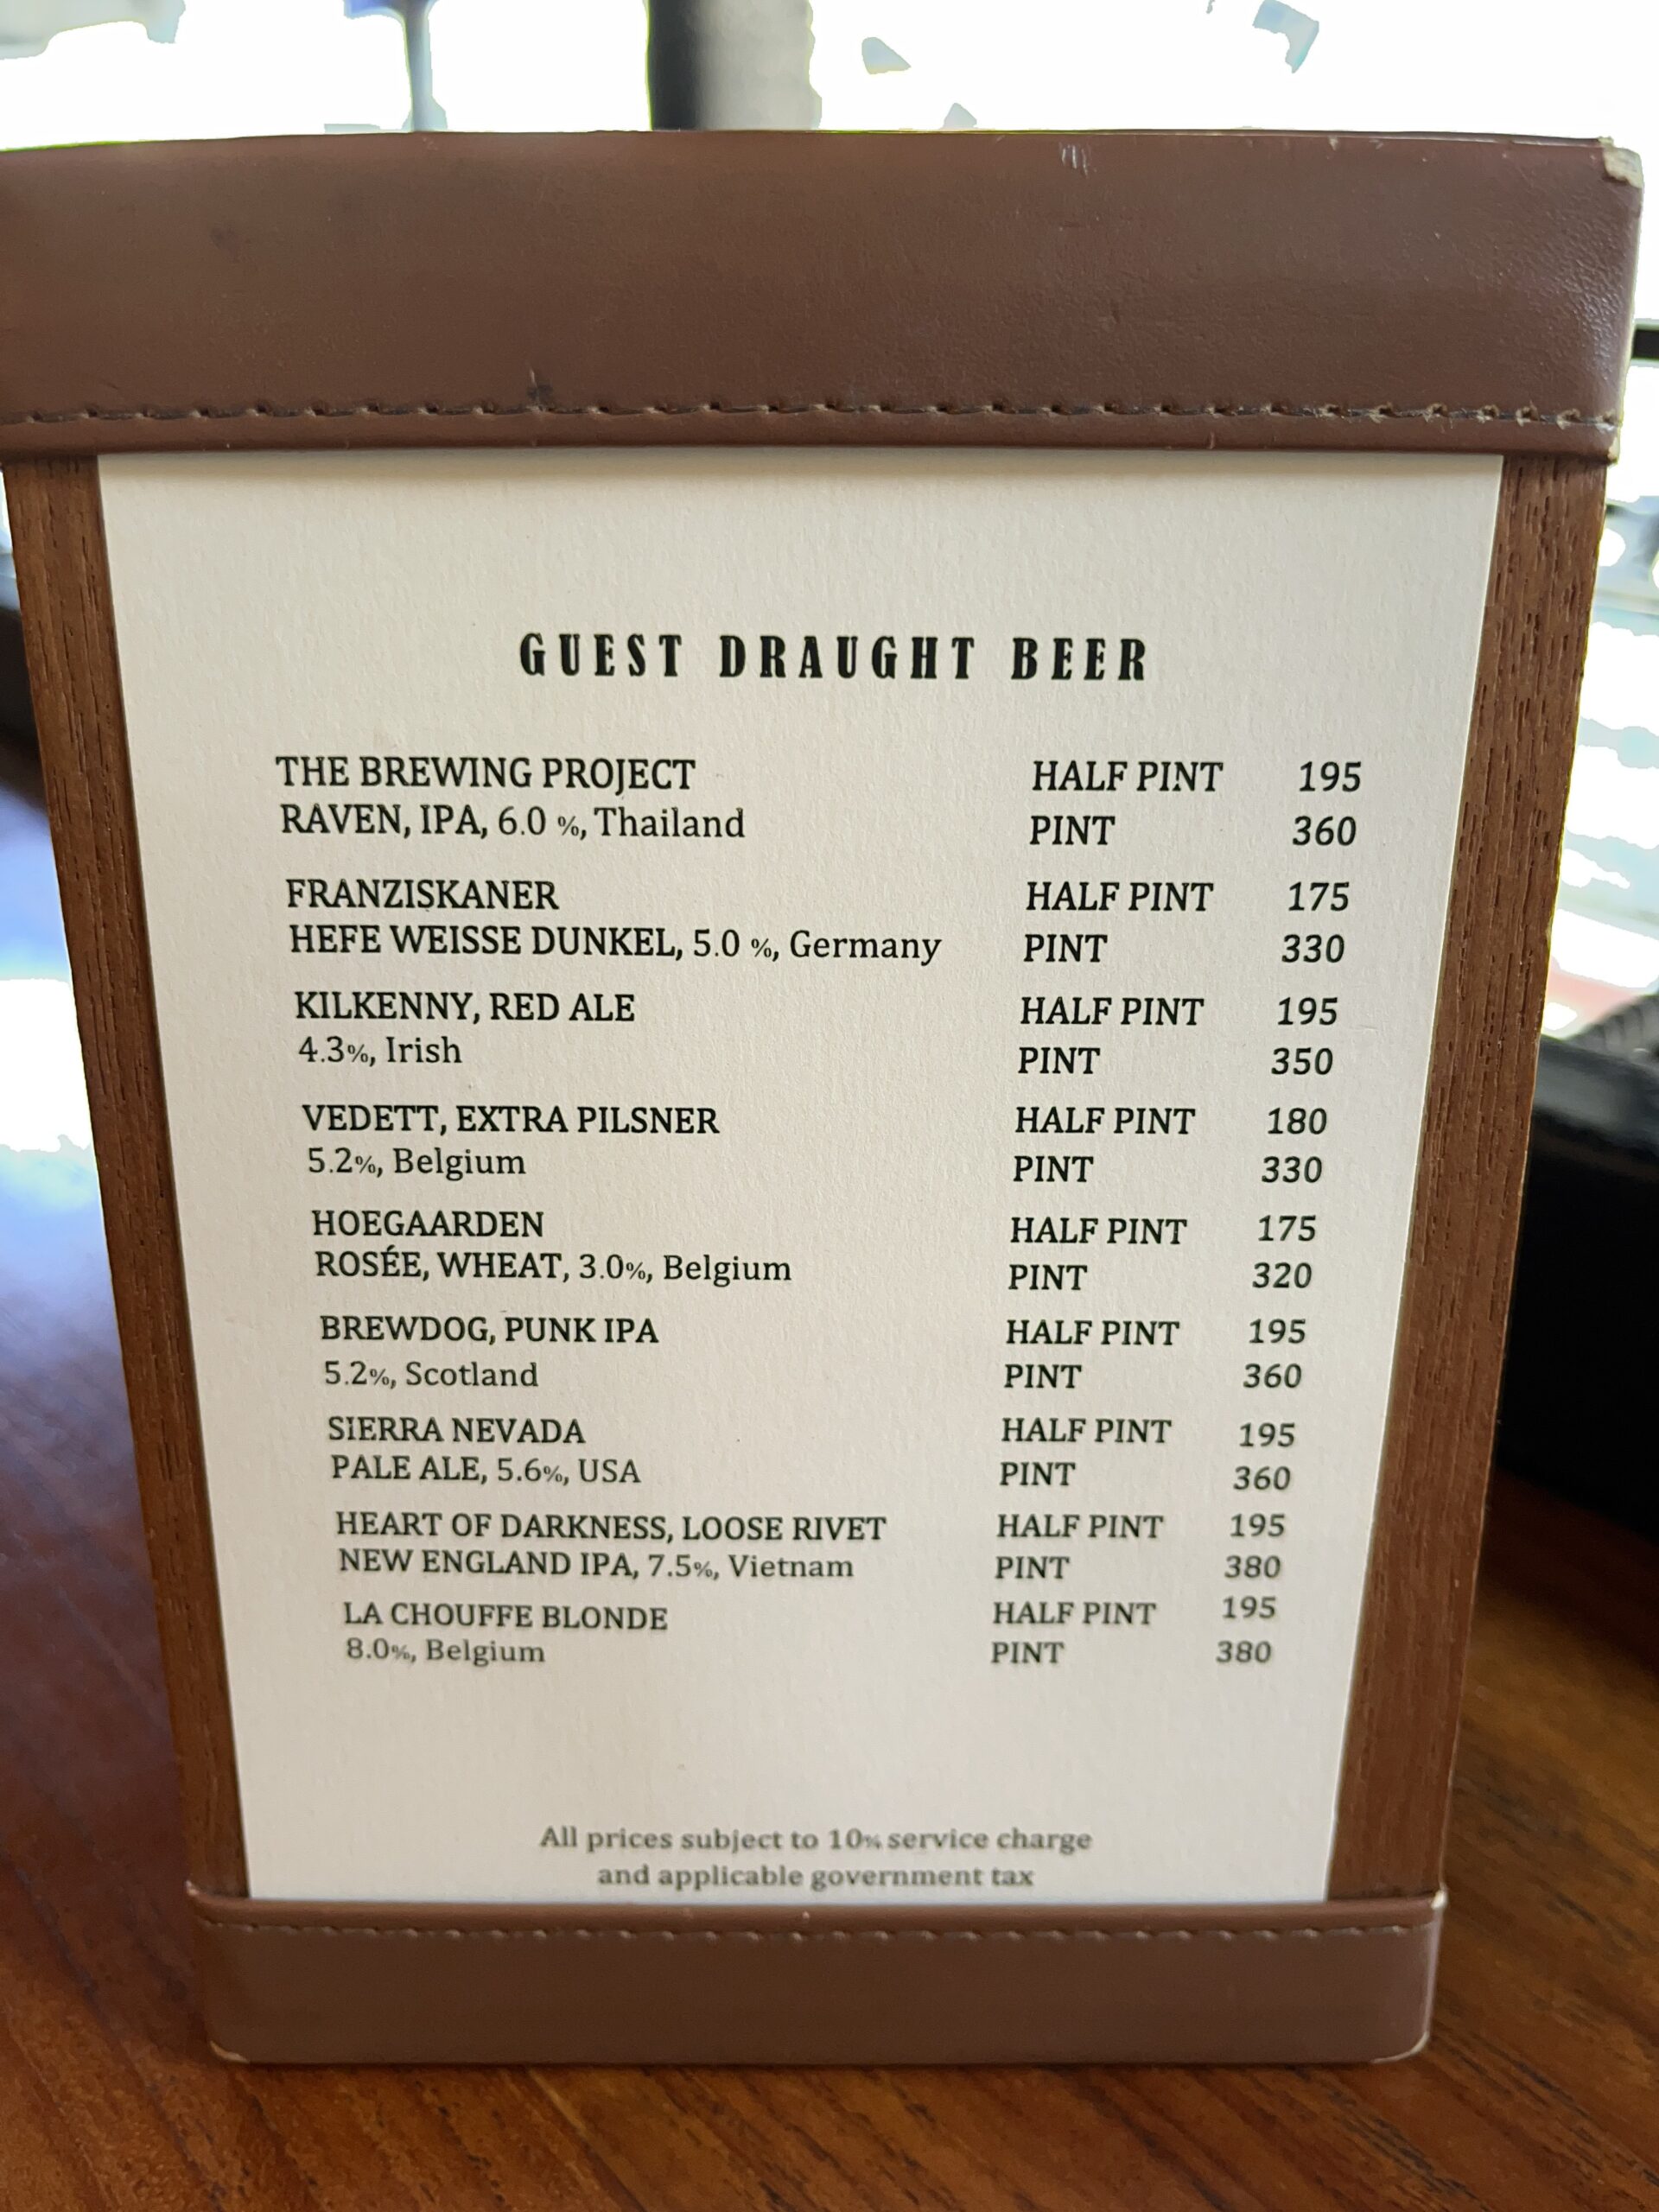 GUEST DRAUGHT BEER
THE BREWING PROJECT HALF PINT 195
RAVEN, IPA, 6.0 %, Thailand PINT 360
FRANZISKANER HALF PINT 175
HEFE WEISSE DUNKEL, 5.0 %, Germany PINT 330
KILKENNY, RED ALE HALF PINT 195
4.3%, Irish PINT 350
VEDETT, EXTRA PILSNER HALF PINT 180
5.2%, Belgium PINT 330
HOEGAARDEN HALF PINT 175
ROSÉE, WHEAT, 3.0%, Belgium PINT 320
BREWDOG, PUNK IPA HALF PINT 195
5.2%, Scotland PINT 360
SIERRA NEVADA HALF PINT 195
PALE ALE, 5.6%, USA PINT 360
HEART OF DARKNESS, LOOSE RIVET HALF PINT 195
NEW ENGLAND IPA, 7.5%, Vietnam PINT 380
LA CHOUFFE BLONDE HALF PINT 195
8.0%, Belgium PINT 380
All prices subject to 10% service charge
and applicable government tax